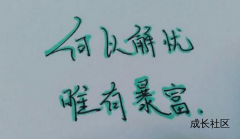 何以解忧
唯有暴富.
成长社区